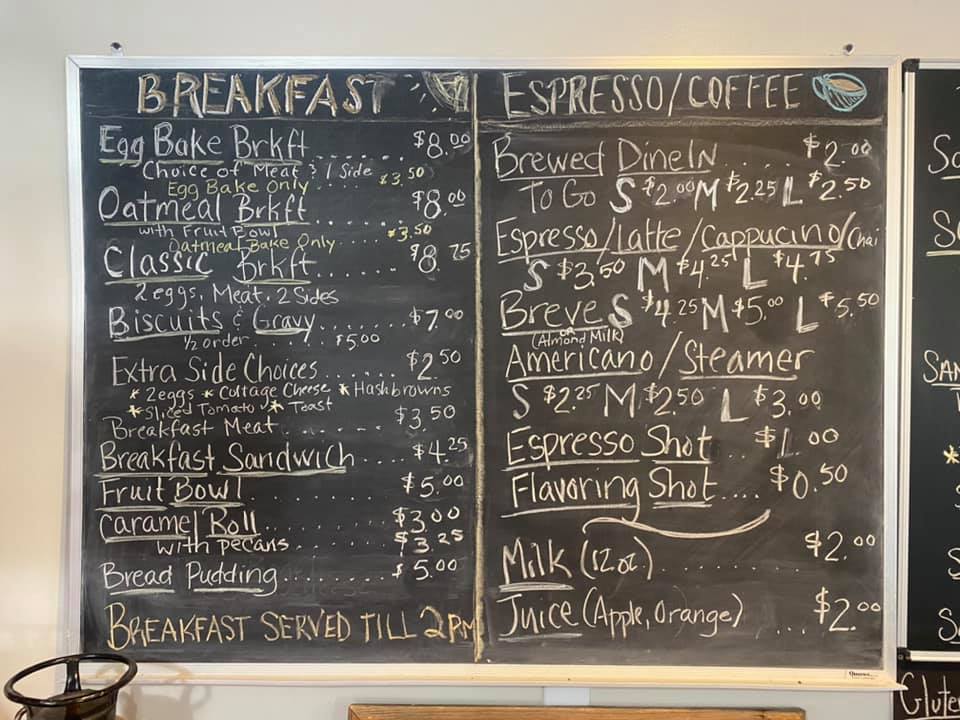 BREAKFAST
Egg Bake Brkft ....... $8.00
Choice of Meat & 1 Side
Egg Bake Only .... $3.50
Oatmeal Brkft ....... $8.00
with Fruit Bowl
Oatmeal Bake Only .... $3.50
Classic Brkft ...... $8.75
2 eggs, Meat, 2 Sides
Biscuits & Gravy ....... $7.00
1/2 order ....... $5.00
Extra Side Choices ....... $2.50
* 2eggs * Cottage Cheese * Hashbrowns
* Sliced Tomato * Toast
Breakfast Meat ....... $3.50
Breakfast Sandwich .... $4.25
Fruit Bowl ......... $5.00
Caramel Roll ....... $3.00
with pecans ....... $3.25
Bread Pudding ........ $5.00
BREAKFAST SERVED TILL 2PM
ESPRESSO/COFFEE
Brewed Dine In .... $2.00
To Go S $2.00 M $2.25 L $2.50
Espresso/Latte/Cappucino/Chai
S $3.50 M $4.25 L $4.75
Breve S $4.25 M $5.00 L $5.50
OR
(Almond Milk)
Americano/Steamer
S $2.25 M $2.50 L $3.00
Espresso Shot .. $1.00
Flavoring Shot .... $0.50
Milk (12oz) ......... $2.00
Juice (Apple, Orange) .... $2.00
SAN
Glute